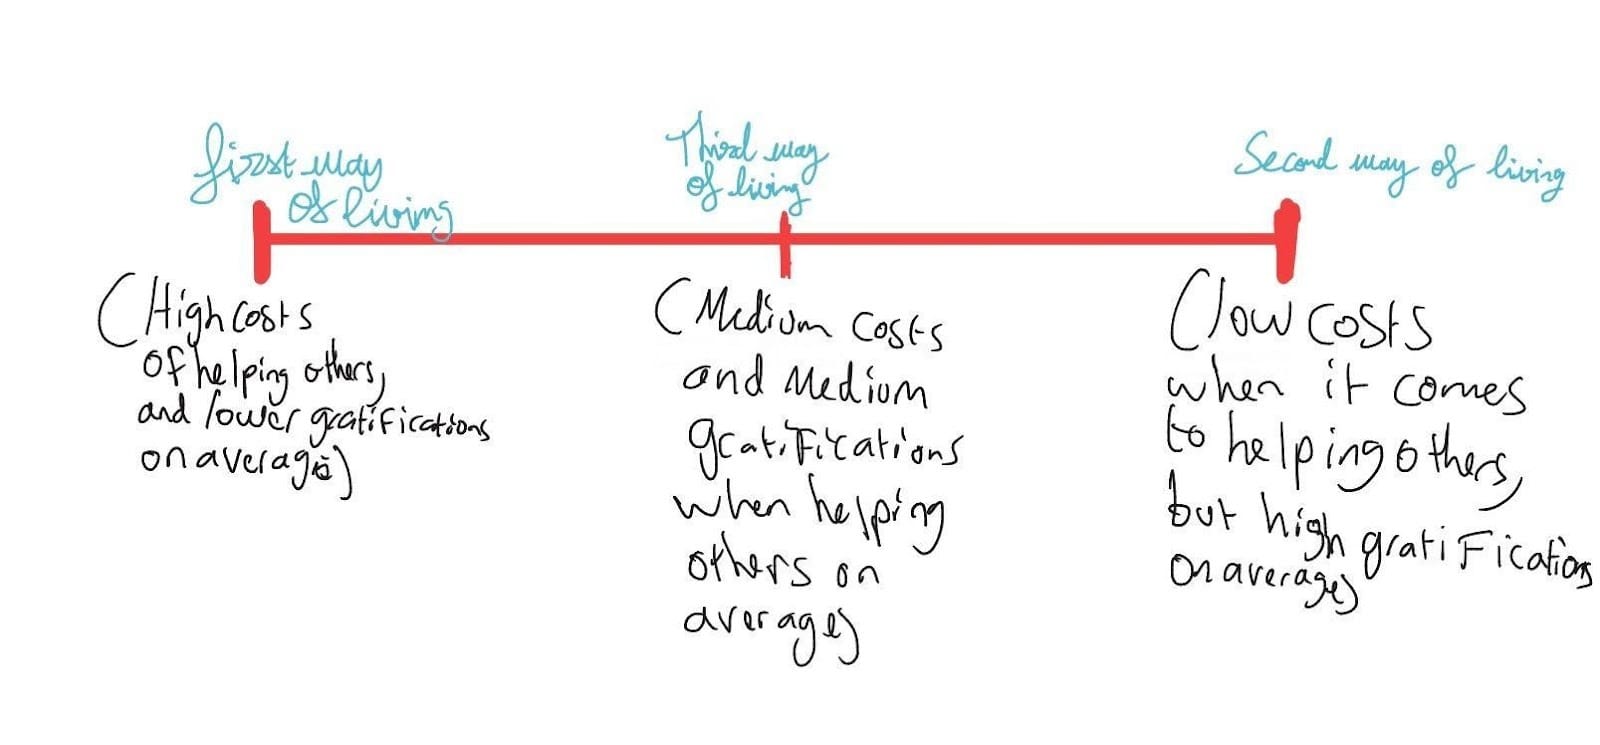 First way
of living
Third way
of living
Second way of living
(High costs
of helping others,
and lower gratifications
on average)
(Medium costs
and Medium
gratifications
when helping
others on
average)
(low costs
when it comes
to helping others,
but high gratifications
on average)